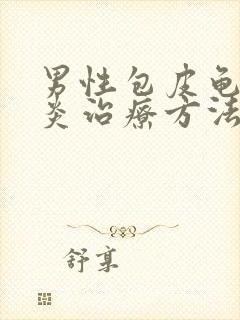 男性包皮龟
炎治疗方法
舒享